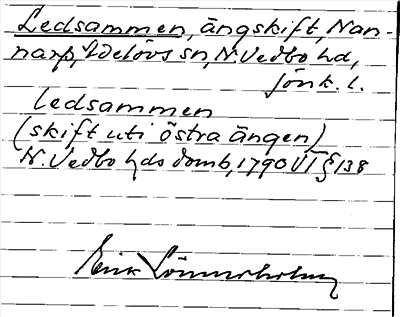 Ledsammen, ängskift, Nan-
narp, Adelövs sn, N. Vedbo hd,
Jönk. l.
Ledsammen
(skift uti östra ängen)
N. Vedbo hds domb, 1790 VI § 138
Erik